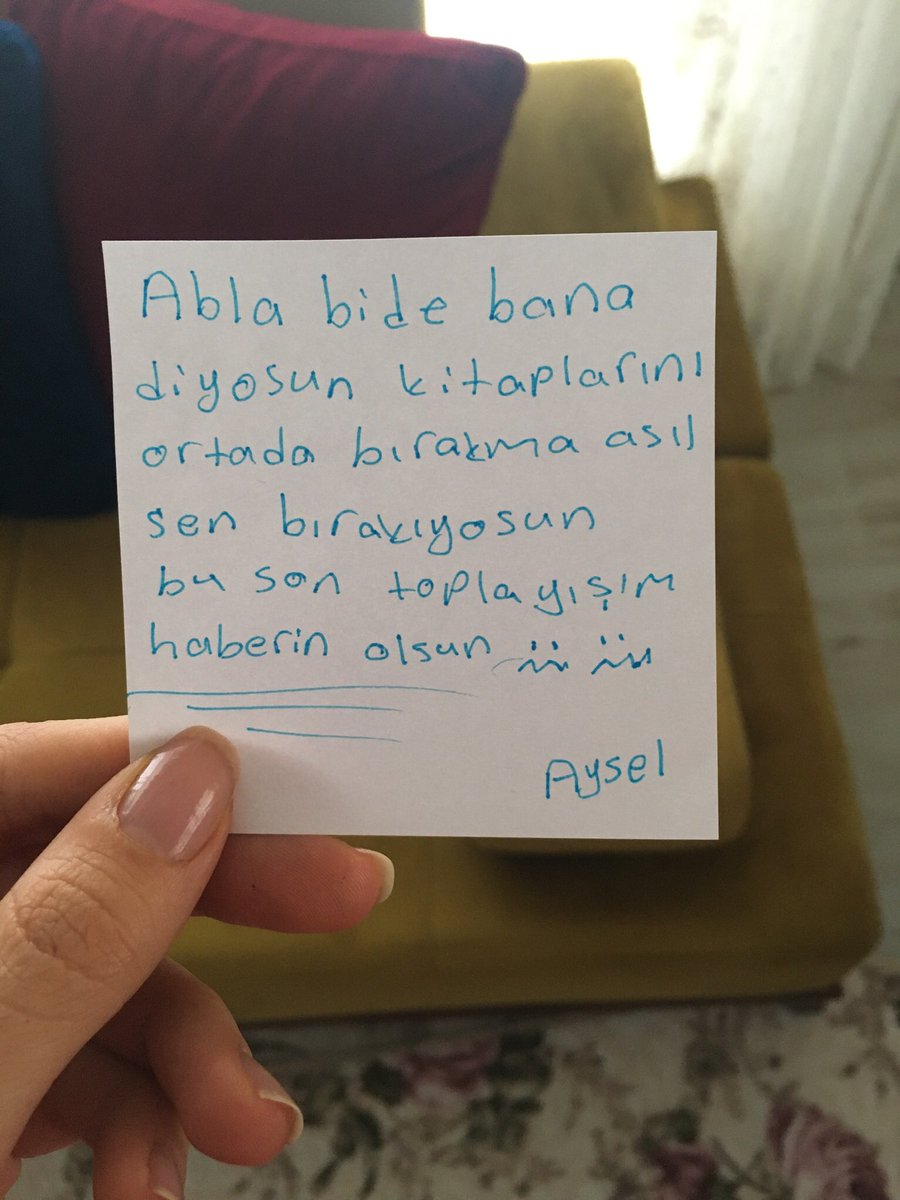 Abla bide bana
diyosun kitaplarını
ortada bırakma asıl
sen bırakıyosun
bu son toplayışım
haberin olsun
Aysel